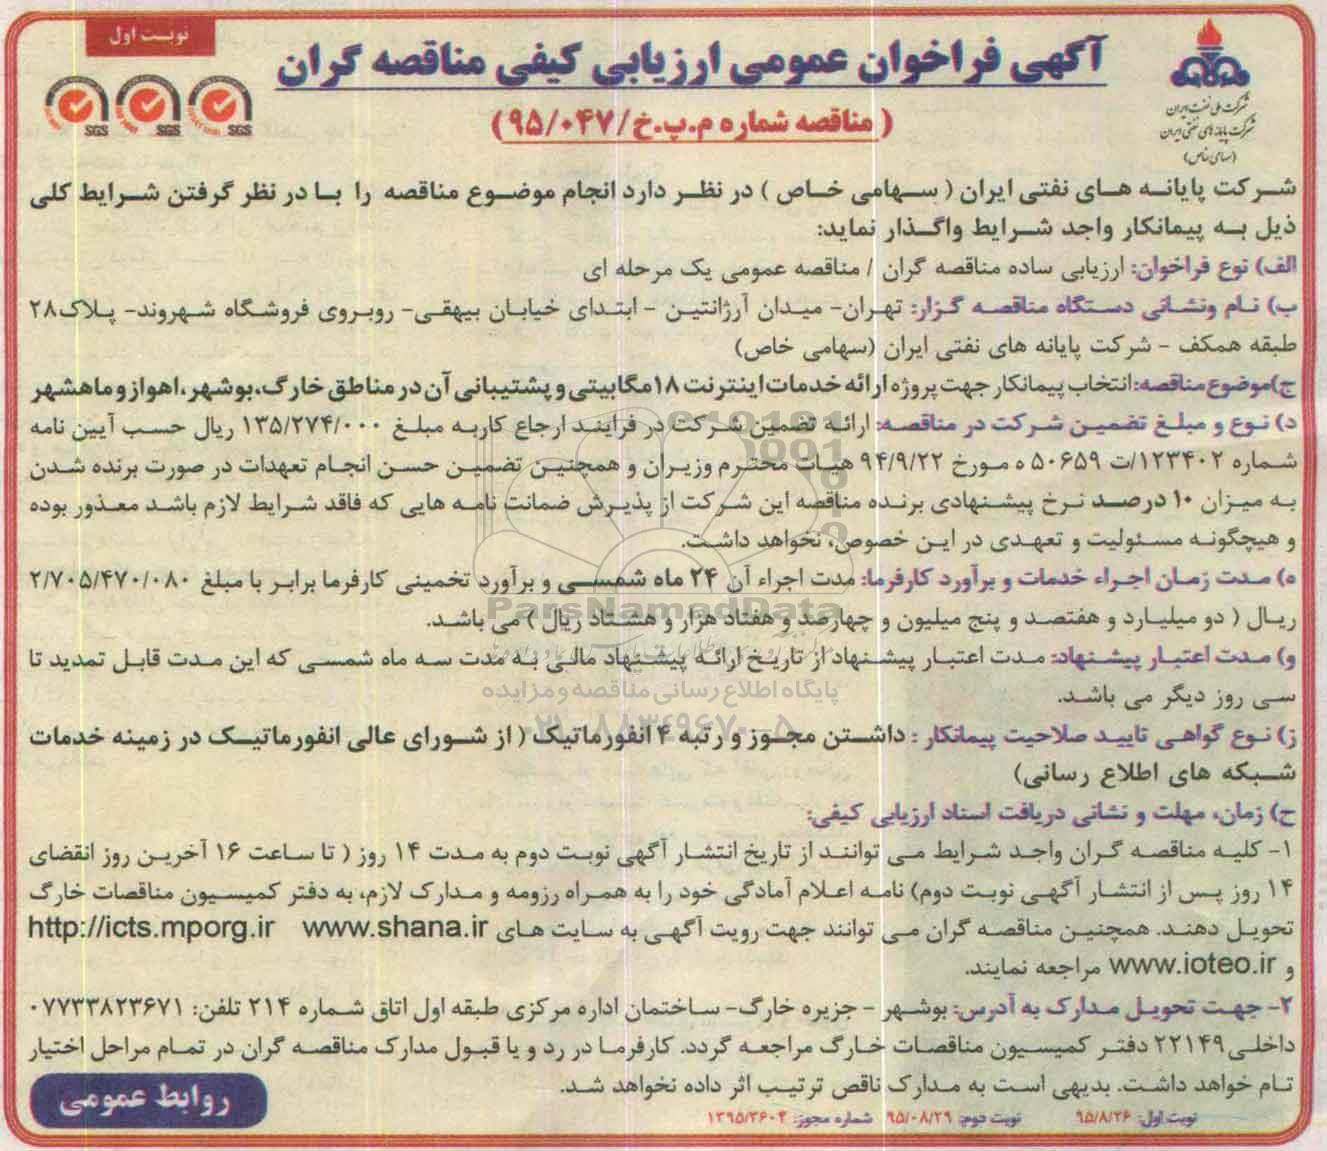 نوبت اول
SGS SGS SGS
شرکت ملی نفت ایران
شرکت پایانه های نفتی ایران
(سهامی خاص)
آگهی فراخوان عمومی ارزیابی کیفی مناقصه گران
(مناقصه شماره م.پ.خ/۹۵/۰۴۷)
شرکت پایانه های نفتی ایران ( سهامی خاص ) در نظر دارد انجام موضوع مناقصه را با در نظر گرفتن شرایط کلی
ذیل به پیمانکار واجد شرایط واگذار نماید:
الف) نوع فراخوان: ارزیابی ساده مناقصه گران / مناقصه عمومی یک مرحله ای
ب) نام ونشانی دستگاه مناقصه گزار: تهران- میدان آرژانتین - ابتدای خیابان بیهقی- روبروی فروشگاه شهروند- پلاک۲۸
طبقه همکف - شرکت پایانه های نفتی ایران (سهامی خاص)
ج)موضوع مناقصه: انتخاب پیمانکار جهت پروژه ارائه خدمات اینترنت ۱۸مگابیتی و پشتیبانی آن در مناطق خارگ، بوشهر، اهواز و ماهشهر
د) نوع و مبلغ تضمین شرکت در مناقصه: ارائه تضمین شرکت در فرایند ارجاع کاربه مبلغ ۱۳۵/۲۷۴/۰۰۰ ریال حسب آیین نامه
شماره ۱۲۳۴۰۲/ت ۵۰۶۵۹ ه مورخ ۹۴/۹/۲۲ هیات محترم وزیران و همچنین تضمین حسن انجام تعهدات در صورت برنده شدن
به میزان ۱۰ درصد نرخ پیشنهادی برنده مناقصه این شرکت از پذیرش ضمانت نامه هایی که فاقد شرایط لازم باشد معذور بوده
و هیچگونه مسئولیت و تعهدی در این خصوص، نخواهد داشت.
ه) مدت زمان اجراء خدمات و برآورد کارفرما: مدت اجراء آن ۲۴ ماه شمسی و برآورد تخمینی کارفرما برابر با مبلغ ۲/۷۰۵/۴۷۰/۰۸۰
ریال ( دو میلیارد و هفتصد و پنج میلیون و چهارصد و هفتاد هزار و هشتاد ریال ) می باشد.
و) مدت اعتبار پیشنهاد: مدت اعتبار پیشنهاد از تاریخ ارائه پیشنهاد مالی به مدت سه ماه شمسی که این مدت قابل تمدید تا
سی روز دیگر می باشد.
ز) نوع گواهی تایید صلاحیت پیمانکار : داشتن مجوز و رتبه ۴ انفورماتیک ( از شورای عالی انفورماتیک در زمینه خدمات
شبکه های اطلاع رسانی)
ح) زمان، مهلت و نشانی دریافت اسناد ارزیابی کیفی:
۱- کلیه مناقصه گران واجد شرایط می توانند از تاریخ انتشار آگهی نوبت دوم به مدت ۱۴ روز ( تا ساعت ۱۶ آخرین روز انقضای
۱۴ روز پس از انتشار آگهی نوبت دوم) نامه اعلام آمادگی خود را به همراه رزومه و مدارک لازم، به دفتر کمیسیون مناقصات خارگ
تحویل دهند. همچنین مناقصه گران می توانند جهت رویت آگهی به سایت های http://icts.mporg.ir   www.shana.ir
و www.ioteo.ir مراجعه نمایند.
۲- جهت تحویل مدارک به آدرس: بوشهر - جزیره خارگ- ساختمان اداره مرکزی طبقه اول اتاق شماره ۲۱۴ تلفن: ۰۷۷۳۳۸۲۳۶۷۱
داخلی ۲۲۱۴۹ دفتر کمیسیون مناقصات خارگ مراجعه گردد. کارفرما در رد و یا قبول مدارک مناقصه گران در تمام مراحل اختیار
تام خواهد داشت. بدیهی است به مدارک ناقص ترتیب اثر داده نخواهد شد.
نوبت اول: ۹۵/۸/۲۶ نوبت دوم: ۹۵/۰۸/۲۹ شماره مجوز: ۱۳۹۵/۳۶۰۴
روابط عمومی
ParsNamadData
پایگاه اطلاع رسانی مناقصه و مزایده
۰۲۱-۸۸۳۴۹۶۷۰-۵